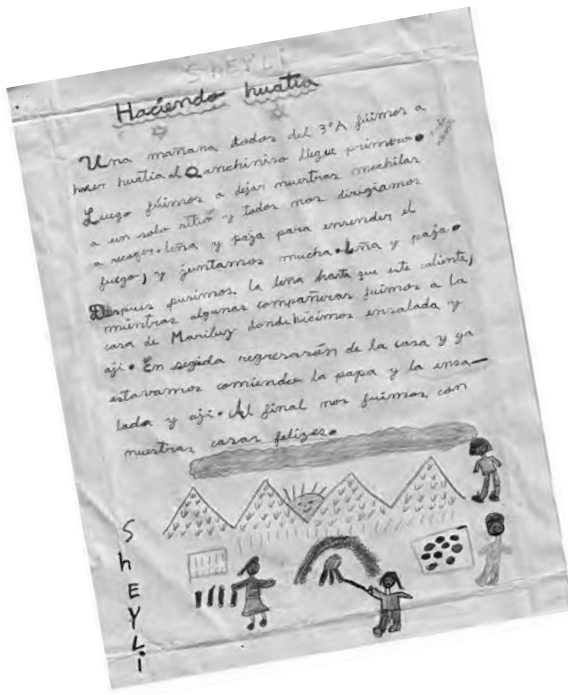 SHEYLI
Haciendo huatia
Una mañana todos del 3°A fúimos a
hacer huatia al Qanchiniso llegue primero.
Luego fúimos a dejar nuestras mochilas
a un solo sitió y todos nos dirigiamos
a recoger. leña y paja para enrender el
fuego, y juntamos mucha. leña y paja.
Después pusimos la leña hasta que este caliente,
mientras algunas compañeras fuimos a la
casa de Mariluz dondehicimos ensalada y
aji. En segida regresarón de la casa y ya
estavamos comiendo la papa y la ensa-
lada y aji. Al final nos fuimos con
nuestras casas felizes.
SHEYLI